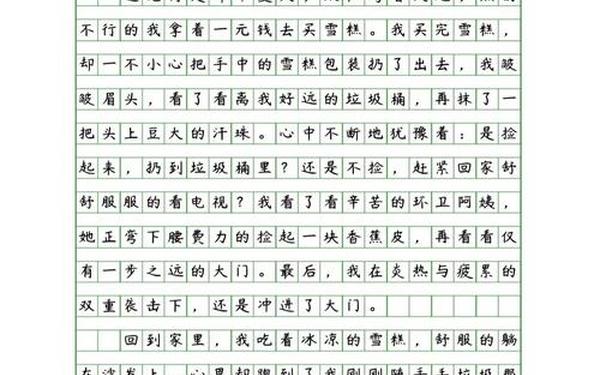 不行的我拿着一元钱去买雪糕。我买完雪糕，
却一不小心把手中的雪糕包装扔了出去，我皱
皱眉头，看了看离我好远的垃圾桶，再抹了一
把头上豆大的汗珠。心中不断地犹豫着：是捡
起来，扔到垃圾桶里？还是不捡，赶紧回家舒
舒服服的看电视？我看了看辛苦的环卫阿姨，
她正弯下腰费力的捡起一块香蕉皮，再看看仅
有一步之远的大门。最后，我在炎热与疲累的
双重袭击下，还是冲进了大门。
回到家里，我吃着冰凉的雪糕，舒服的躺
在沙发上，心里却想到了我刚刚随手丢垃圾那